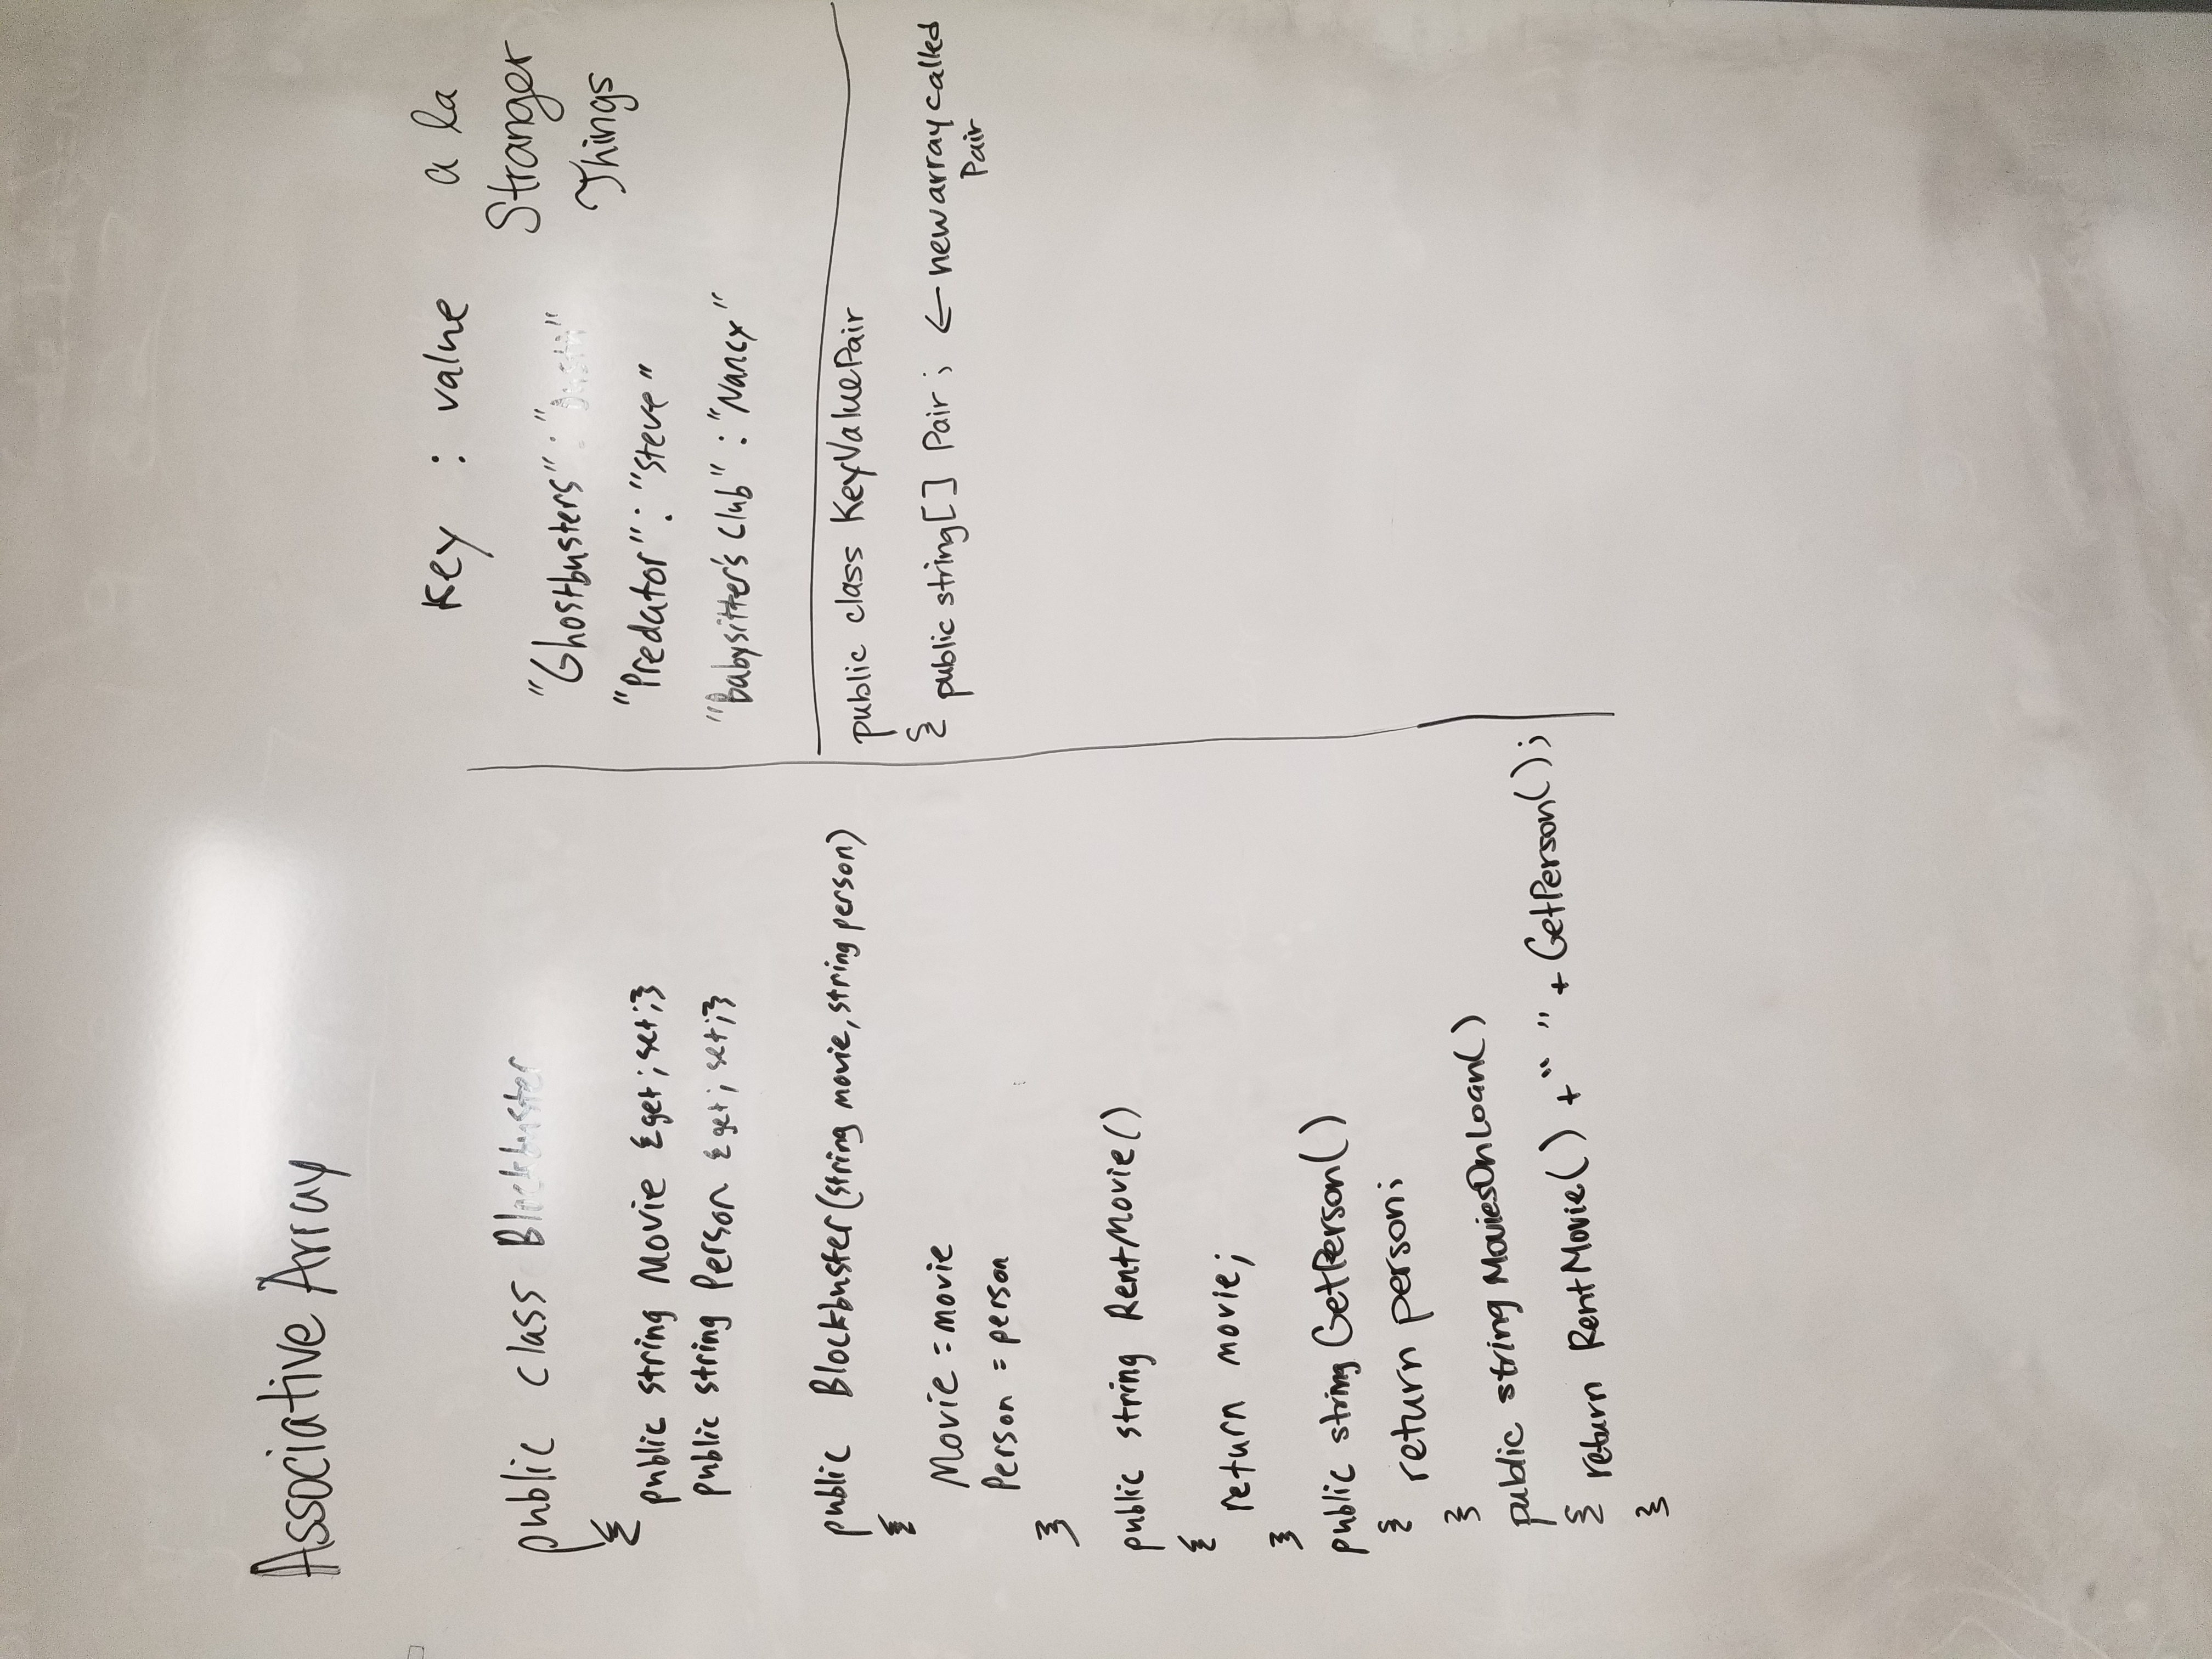 Associative Array
public class Blockbuster
{
public string Movie {get; set;}
public string Person {get; set;}
public Blockbuster(string movie, string person)
{
Movie = movie
Person = person
}
public string RentMovie()
{
return movie;
}
public string GetPerson()
{ return person;
}
public string MoviesOnLoan()
{ return RentMovie() + " " + GetPerson();
}
Key : value
"Ghostbusters" : "Dustin"
"Predator" : "Steve"
"Babysitter's Club" : "Nancy"
a la
Stranger
Things
public class KeyValuePair
{ public string[] Pair; ← new array called
Pair